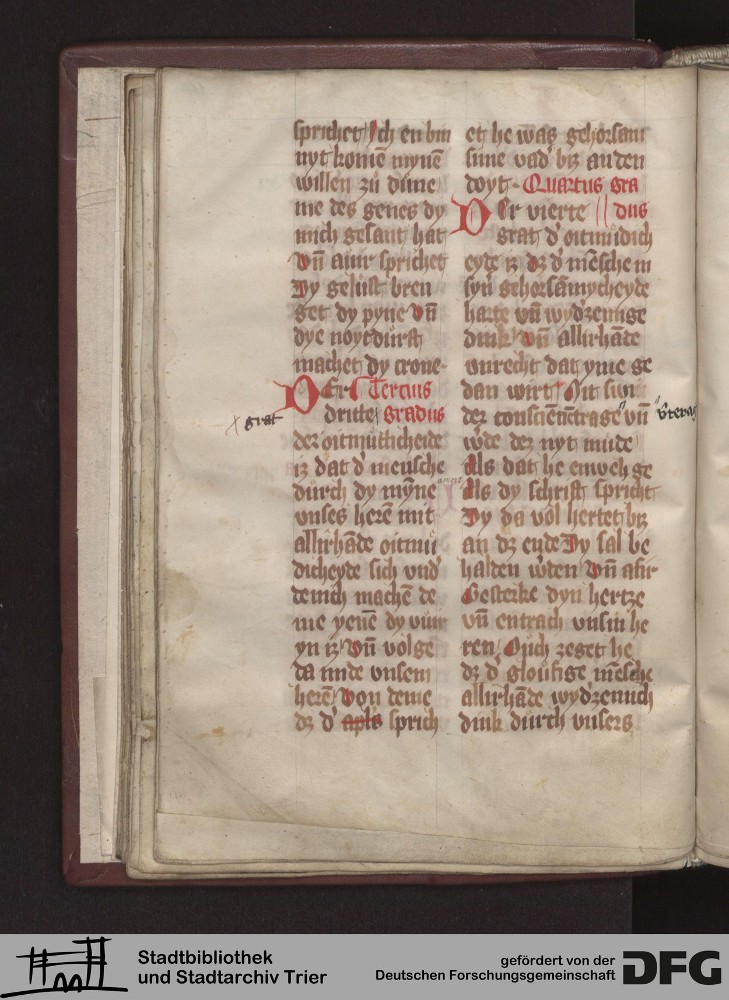 sprichet Ich en bin
nyt komē mynē
willen zů dūne
me des genes dy
mich gesant hat
Vn̄ auir sprichet
Dy gelůst bren
get dy pyne Vn̄
dye noytdůrft
machet dy crone·
DEr Tercius
dritte Gradus
grat
der oitmütlicheide
iz dat d' mensche
důrch dy mÿne
vnses herē mit
allirhāde oitmü
dicheyde sich vnd'
temich machē de
me yenē dy vur
yn iz Vn̄ volge
da mide vnsem
herē Von deme
dz d' apl's sprich
et he was gehorsam
sime vad' biz an den
doyt· Quartus gra
DEr vierte dus
grat d' oitmüdich
eyde iz dz d' mēsche in
syn̄ gehorsāmycheyde
harte vn̄ wydzemige
dink Vn̄ allirhāde
vnrecht dat yme ge
dan wirt Mit swi
der consciēntrage vn̄
werde der nyt müde
Als dat he enweh ge
Als dy schrift spricht
Dy da vol hertet biz
an dz ende Dy sal be
halden w'den Vn̄ afir
Gesterke dyn hertze
vn̄ entrach vnsin he
ren Ouch zeget he
dz d' gloufige mēsche
allirhāde wydzemich
dink důrch vnsers
Stadtbibliothek
und Stadtarchiv Trier
gefördert von der
Deutschen Forschungsgemeinschaft
DFG